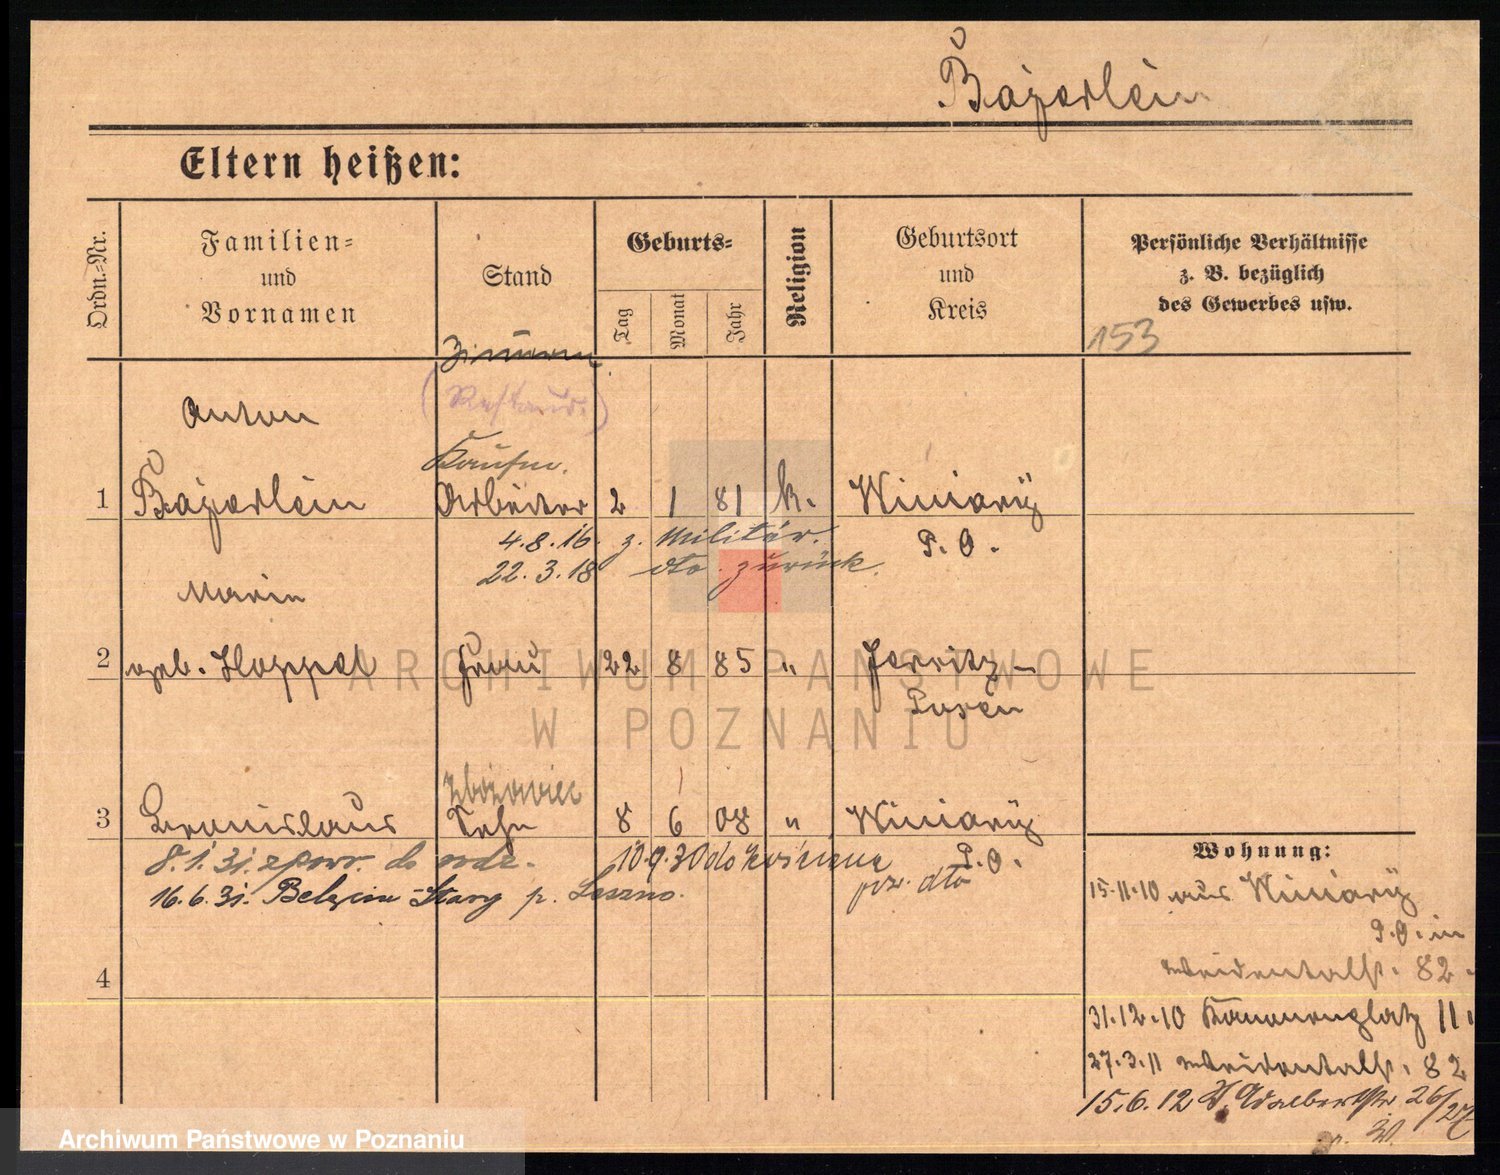 Bajerlein
Eltern heißen:
Ordn.-Nr.
Familien-
und
Vornamen
Stand
Geburts-
Tag
Monat
Jahr
Religion
Geburtsort
und
Kreis
Persönliche Verhältnisse
z. B. bezüglich
des Gewerbes usw.
153
Anton
(Restaur.)
Kaufm.
1 Bajerlein Arbeiter 2 1 81 k. Winiary
4.8.16. z. Militär. P. O.
22.3.18 dto. zurück.
Maria
2 geb. Hoppel Frau 22 8 85 " Jersitz-
Posen
3 Bronislaus Sohn 8 6 08 " Winiary
P. O.
8.1.31. z powr. do rodz. 10.9.30 do Kościana
16.6.31. Belęcin Stary p. Leszno. pow. dto
Wohnung:
15.11.10 aus Winiary
P. O. in
4
31.12.10 Kanonenplatz 11.
27.3.11 82
15.6.12 St. Adalbertstr 26/27
ARCHIWUM PAŃSTWOWE
W POZNANIU
Archiwum Państwowe w Poznaniu